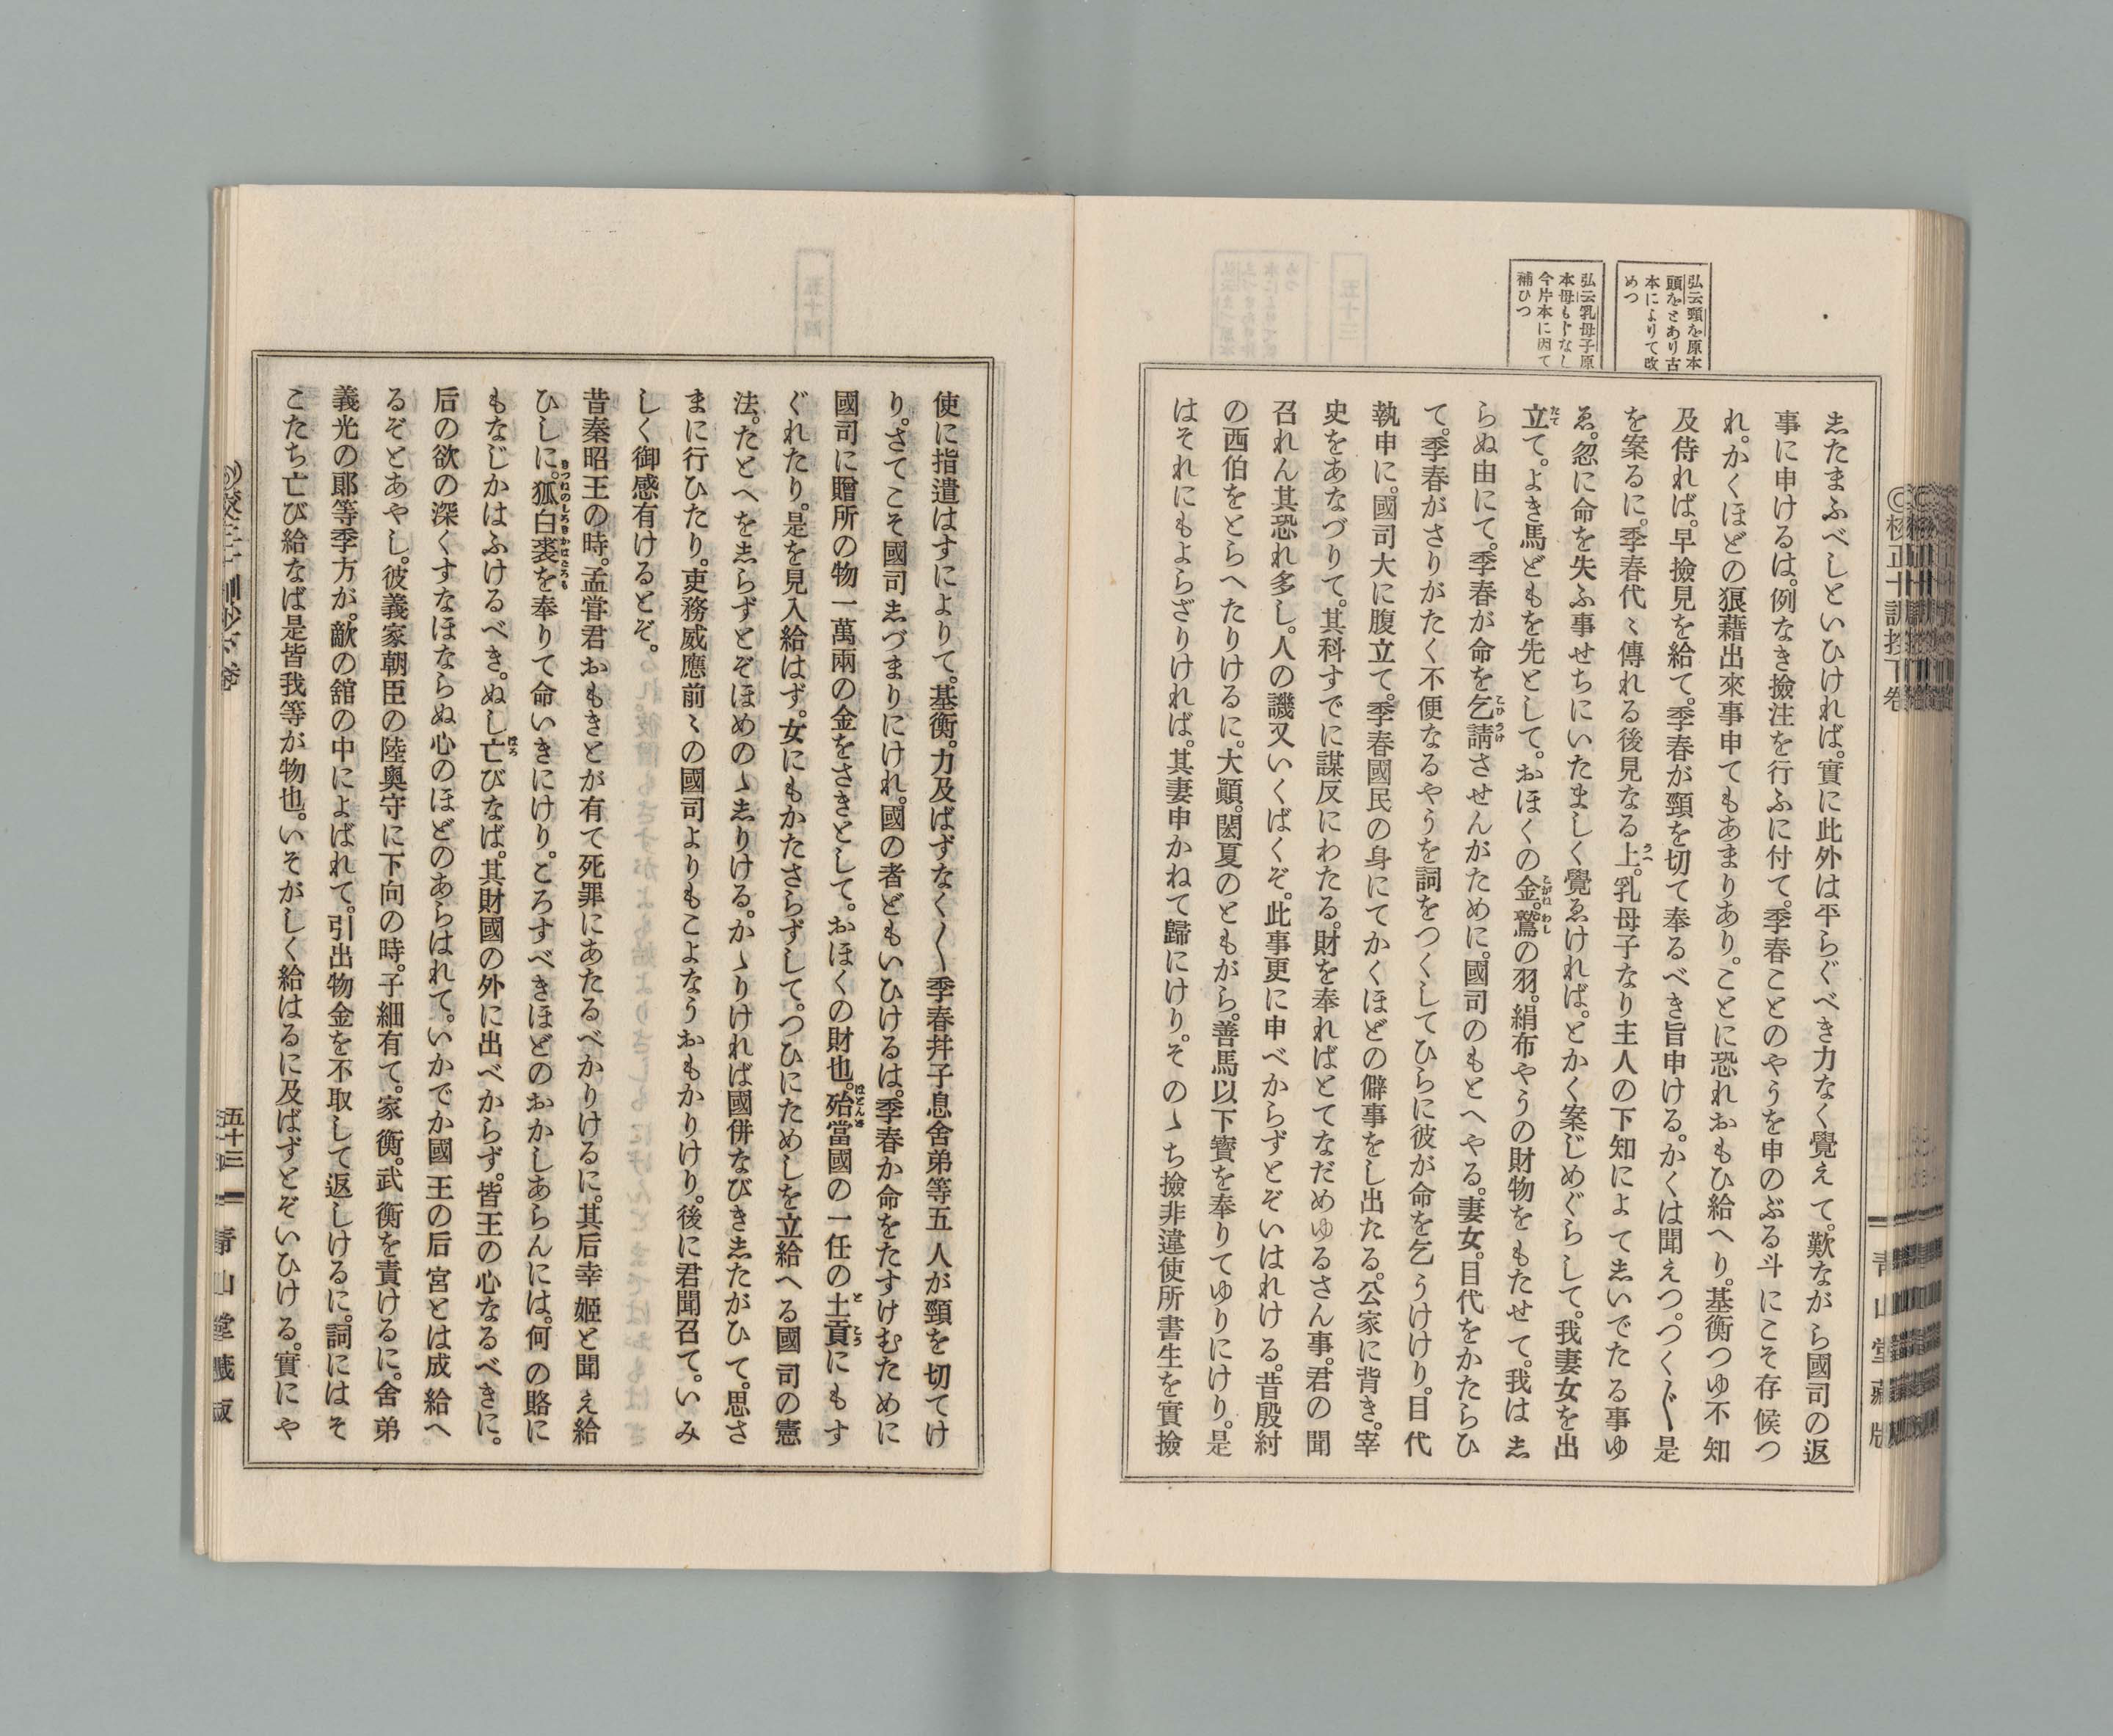 弘云頸を原本
頭をとあり古
本によりて改
めつ
弘云乳母子原
本母もじなし
今片本に因て
補ひつ
志たまふべしといひければ。實に此外は平らぐべき力なく覺えて。歎ながら國司の返
事に申けるは。例なき撿注を行ふに付て。季春ことのやうを申のぶる斗にこそ存候つ
れ。かくほどの狼藉出來事申てもあまりあり。ことに恐れおもひ給へり。基衡つゆ不知
及侍れば。早撿見を給て。季春が頸を切て奉るべき旨申ける。かくは聞えつ。つく〴〵是
を案るに。季春代〻傳れる後見なる上。乳母子なり主人の下知によて志いでたる事ゆ
ゑ。忽に命を失ふ事せちにいたましく覺ゑければ。とかく案じめぐらして。我妻女を出
立て。よき馬どもを先として。おほくの金。鷲の羽。絹布やうの財物をもたせて。我は志
らぬ由にて。季春が命を乞請させんがために。國司のもとへやる。妻女。目代をかたらひ
て。季春がさりがたく不便なるやうを詞をつくしてひらに彼が命を乞うけけり。目代
執申に。國司大に腹立て。季春國民の身にてかくほどの僻事をし出たる。公家に背き。宰
史をあなづりて。其科すでに謀反にわたる。財を奉ればとてなだめゆるさん事。君の聞
召れん其恐れ多し。人の譏又いくばくぞ。此事更に申べからずとぞいはれける。昔殷紂
の西伯をとらへたりけるに。大顚。閎夏のともがら。善馬以下寳を奉りてゆりにけり。是
はそれにもよらざりければ。其妻申かねて歸にけり。そのゝち撿非違使所書生を實撿
校正十訓抄下卷
青山堂藏版
使に指遣はすによりて。基衡。力及ばずなく〱季春幷子息舍弟等五人が頸を切てけ
り。さてこそ國司志づまりにけれ。國の者どもいひけるは。季春か命をたすけむために
國司に贈所の物一萬兩の金をさきとして。おほくの財也。殆當國の一任の土貢にもす
ぐれたり。是を見入給はず。女にもかたさらずして。つひにためしを立給へる國司の憲
法。たとへを志らずとぞほめのゝ志りける。かゝりければ國併なびき志たがひて。思さ
まに行ひたり。吏務威應前〻の國司よりもこよなうおもかりけり。後に君聞召て。いみ
しく御感有けるとぞ。
昔秦昭王の時。孟甞君おもきとが有て死罪にあたるべかりけるに。其后幸姬と聞え給
ひしに。狐白裘を奉りて命いきにけり。ころすべきほどのおかしあらんには。何の賂に
もなじかはふけるべき。ぬし亡びなば。其財國の外に出べからず。皆王の心なるべきに。
后の欲の深くすなほならぬ心のほどのあらはれて。いかでか國王の后宮とは成給へ
るぞとあやし。彼義家朝臣の陸奥守に下向の時。子細有て。家衡。武衡を責けるに。舍弟
義光の郎等季方が。敵の舘の中によばれて。引出物金を不取して返しけるに。詞にはそ
こたち亡び給なば是皆我等が物也。いそがしく給はるに及ばずとぞいひける。實にや
五十三
青山堂藏版